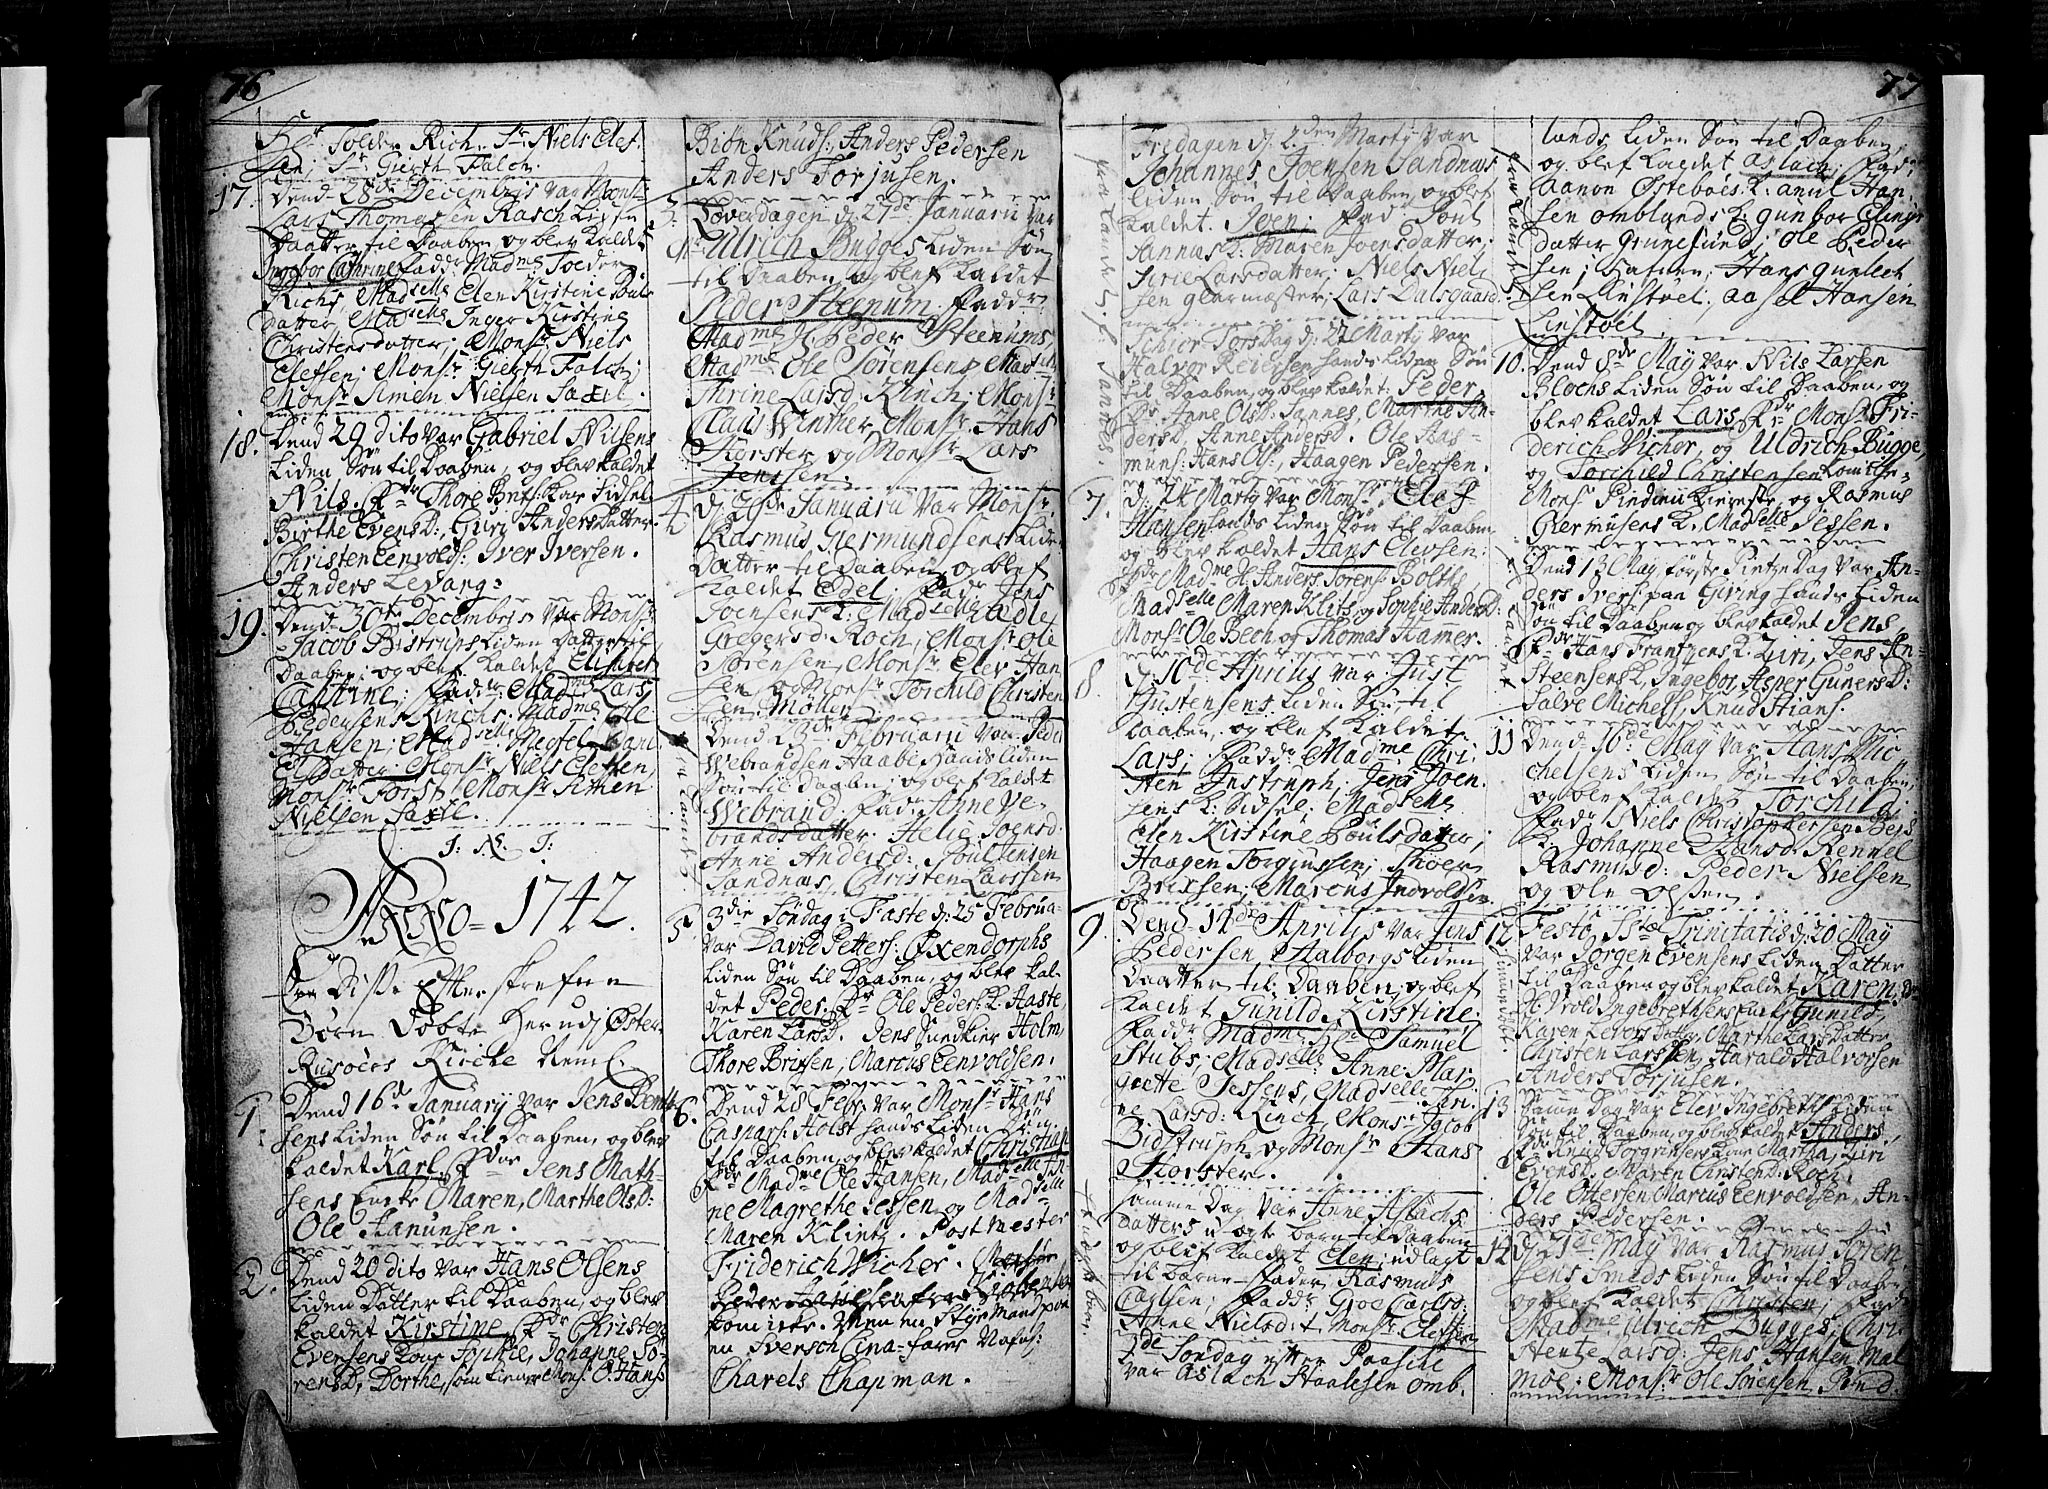 76
Hr Folder Rich: Sr Niels Elef
sen; Sr Gierth Falch.
17. Dend 28de Decembris var Mons:
Lars Thomassen Rasch Liden
Daatter til Daaben, og blev Kaldet
Ingebor Cathrine, Faddr Madme Folder
Richs, Madselle Elen Kirstine Pouls
datter, Madselle Inger Kirstine
Christensdatter; Monsr Niels
Elefsen; Monsr Gierth Falch;
Monsr Simen Nielsen Saxil.
18. Dend 29 dito var Gabriel Nilsens
Liden Søn til Daaben, og blev kaldet
Nils. Fdr Thore Brits: Kar Sidsel
Birthe EvensD:, Guri Anders Datter
Christen Eenvolds: Iver Iversen.
Anders Levang:
19. Dend 30te Decembris var Monsr
Jacob Bistrups Liden Datter til
Daaben; og blef Kaldet Elisabet
Catrine; Faddr: Madme Lars
Pedersens Kinchs; Madme: Ole
Hansen; Madselle Metsel
Els Datter; Monsr Niels Elefsen,
Monsr Forst, Monsr Simen
Nielsen Saxil.
J: N: J:
ANNO = 1742.
Er Disse Efterskrefne
Børn Døbte Her udj Øster
Rusøers Kircke Neml.
1. Dend 16de January var Jens Bent
sens Liden Søn til Daaben, og blev
kaldet Karl. Fdr Jens Math-
sens Encke Maren, Marthe OlsD:
Ole Hanunsen.
2. Dend 20 dito var Hans Olsens
Liden Datter til Daaben, og blev
kaldet Kirstine, Fdr Christen
Eversens Kone Sophie, Johanne So-
rensD, Dorthe, som tiener Mons: O: Hans
Biön Knuds: Anders Pedersen
Anders Torjusen.
3. Löverdagen d: 27de Januarii var
Sr Ulrich Bugges Liden Søn
til Daaben, og blef Kaldet
Peder Steenum. Faddr:
Madme H: Peder Steenums,
Madme Ole Sörensens, Madselle
Thrine Larsd: Kinch; Monsr
Claus Winther, Monsr: Hans
Störster, og Monsr Lars
Jenssen.
4. d: 29de Januarii var Monsr:
Rasmus Giermundsens Liden
Datter til Daaben, og blef
Kaldet Edel; Fadr Jens
Joensens K: Madselle Adle
Gregersd: Koch, Monsr Ole
Sörensen, Monsr Elev Han
sen og Monsr Torchild Christen
sen Möller.
Dend 23de Februarii var Peder
Webrandsen Haabe Sands Liden
Søn til Daaben; og blef Kaldet
Webrand. Fadr: Anne We
brandsdatter. Helie Joensd
Anne Andersd: Poul Jensen
Sandnæs, Christen Larssen
5. 3die Söndag i Faste d: 25 Februa-
var David Petters: Oxendorphs
Liden Søn til Daaben, og blev kal-
det Peder. Fdr Ole Peders: K. Haste,
Karen LarsD. Jens Jundkier Holm,
Thore Brixsen, Marcus Eenvoldsen.
6. Dend 28 Febr: var Monsr Hans
Caspars: Holst Sands Liden Søn
til Daaben, og blev kaldet Christian
Fdr Madme Ole Hansen, Madselle An
ne Magrethe Jessen, og Madselle
Maren Klintz. Postmester
Friderich Wicher.
Peder Hansen fra Kiöben
kom icke. Men en Styrmand paa
en Svensch Cina-farer Nafnl:
Charels Chapman.
77
Fredagen d: 2den Marty var
Johannes Joensen Sandnæs
liden Søn til Daaben, og blef
kaldet. Joen; Fad: Poul
Sannes K: Maren Joensdatter;
Sirie Larsdatter; Niels Niels
sen glarmæster; Lars Dalsgaard.
Schior Torsdag d: 22 Marty var
Halvor Redersen Sands Liden Søn
til Daaben, og blev kaldet: Peder.
Fdr Anne OlsD: Sannes, Marthe An-
dersD. Anne AndersD. Ole Has-
muns: Hans Ols:, Haagen Pedersen.
7. d: 24 Marty var Monsr: Elef
Hansen Sands Liden Søn til Daaben,
og blev kaldet Hans Elevsen:
Fdr Madme H: Anders Sörens: Bolths,
Madselle Maren Klits, og Sophie AndersD:
Monsr Ole Bech og Thomas Hammer.
8. d: 10de Aprilis var Just
Justensens Liden Søn til
Daaben, og blef Kaldet.
Lars; Faddr: Madme Chri:
sten Instruph; Jens Joen
sens K: Sidsel; Madselle
Elen Kirstine Poulsdatter;
Haagen Torginssen; Thoer
Brixsen; Marcus Involdsen.
9. Dend 12de Aprilis var Jens
Pedersen Aalborgs Liden
Daatter til Daaben, og blef
Kaldet Gunild Kirstine.
Faddr Madme Hr Samuel
Stubs; Madselle: Anne Mar
grette Jessens, Madselle Tri:
ne Larsd: Kinch, Monsr Jacob
Bidstruph, og Monsr Hans
Storster.
Samme Dag var Anne Aslachs
datters u-ægte barn til Daaben
og blef Kaldet Elen; udlagt
til barne-Fader, Rasmus
Carlsen; Faddr: Groe Carlsd:
Anne Nielsd: Monsr Elefsen
2de Söndag efter Paasche
var Aslach Haalesen omb.
lands Liden Søn til Daaben,
og blef Kaldet Aslach; Fad:
Aanon Östeböes K: Anul Han
sen omblands K: Gunbor Elings
datter Grunesund; Ole Peder
sen i Hafnen; Hans Gunlech
sen Linstöel; Aasel Hansen
Linstöel.
10. Dend 8de May var Nils Larsen
Blochs Liden Søn til Daaben, og
blev kaldet Lars, Fdr Monsr Fri-
derich Wichor, og Uldrich Bugge,
og Torchild Christensen kom icke,
Monsr Pinderi tieneste, og Rasmus
Giermunsens K. Madselle Jessen.
Dend 13 May, förste Pintze Dag var An-
ders Ivers: paa Giving Sands Liden
Søn til Daaben, og blev kaldet Jens,
Fdr Hans Frantzens K. Zuri, Jens An-
steensens K., Ingebor, Asper GunersD:
Salve Michels, Knud Stians:
11 Dend: 16de May var Hans Mic
chelsens Liden Søn til Daaben,
og blef Kaldet Torchild;
Fadr Niels Christophersen Bers
K. Johanne Hansd: Rennel
Rasmusd: Peder Nielsen
og Ole Olsen.
12. Festo SStæ Trinitatis d: 20 May
var Jörgen Evensens Liden Datter
til Daaben, og blev kaldet Karen,
Wrold Ingebrethsens K. Gunild,
Karen Levers Datter, Marthe Lars Datter
Christen Larssen, Harald Halvorsen
Anders Torjusen.
13. Samme Dag var Elev Ingebreths Liden
Søn til Daaben, og blev kaldet Anders,
Fdr Knud Torgrimsens Kone Martha, Zuri
EvensD, Maren ChristenD: Koch,
Ole Ottersen, Marcus Eenvoldsen, An-
ders Pedersen.
14 d: 21de May var Rasmus Sören
sens Smeds Liden Søn til Daaben
og blef Kaldet Christen; Fadr
Madme Ulrich Bugges, Chri
stentze Larsd: Jens Hansen Mal
möe; Monsr Ole Sörensen, Pind